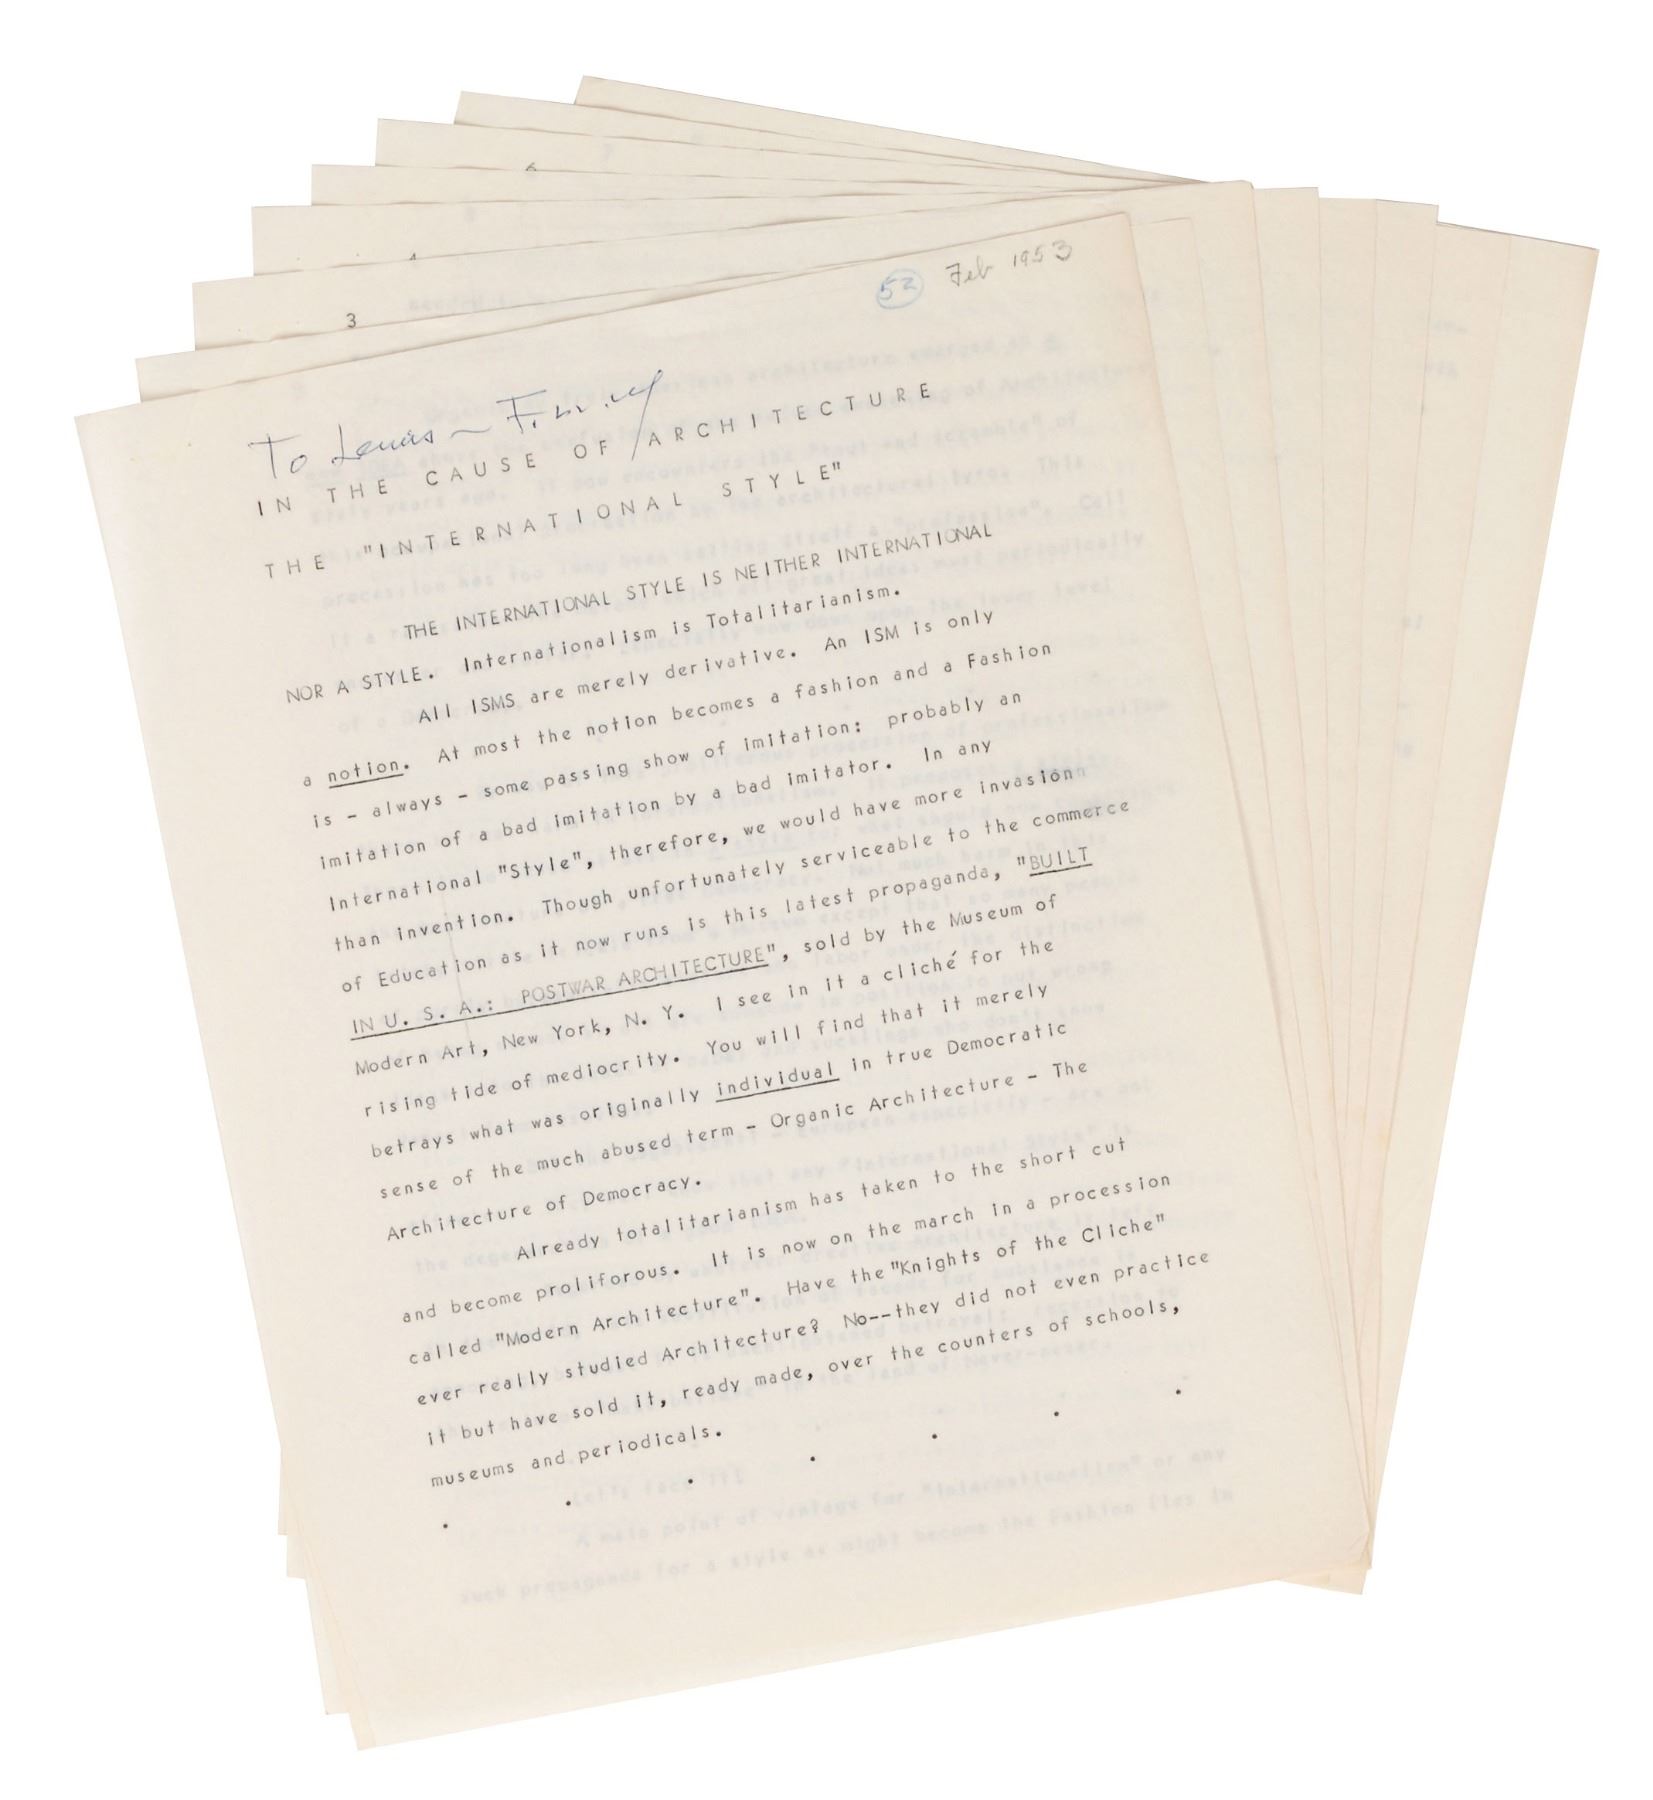 52 Feb 1953
To Lewis — F.Ll.W
IN THE CAUSE OF ARCHITECTURE
THE "INTERNATIONAL STYLE"
THE INTERNATIONAL STYLE IS NEITHER INTERNATIONAL
NOR A STYLE. Internationalism is Totalitarianism.
All ISMS are merely derivative. An ISM is only
a notion. At most the notion becomes a fashion and a Fashion
is - always - some passing show of imitation: probably an
imitation of a bad imitation by a bad imitator. In any
International "Style", therefore, we would have more invasion
than invention. Though unfortunately serviceable to the commerce
of Education as it now runs is this latest propaganda, "BUILT
IN U. S. A.: POSTWAR ARCHITECTURE", sold by the Museum of
Modern Art, New York, N. Y. I see in it a cliché for the
rising tide of mediocrity. You will find that it merely
betrays what was originally individual in true Democratic
sense of the much abused term - Organic Architecture - The
Architecture of Democracy.
Already totalitarianism has taken to the short cut
and become proliforous. It is now on the march in a procession
called "Modern Architecture". Have the "Knights of the Cliche"
ever really studied Architecture? No--they did not even practice
it but have sold it, ready made, over the counters of schools,
museums and periodicals.
. . . . . . .
3